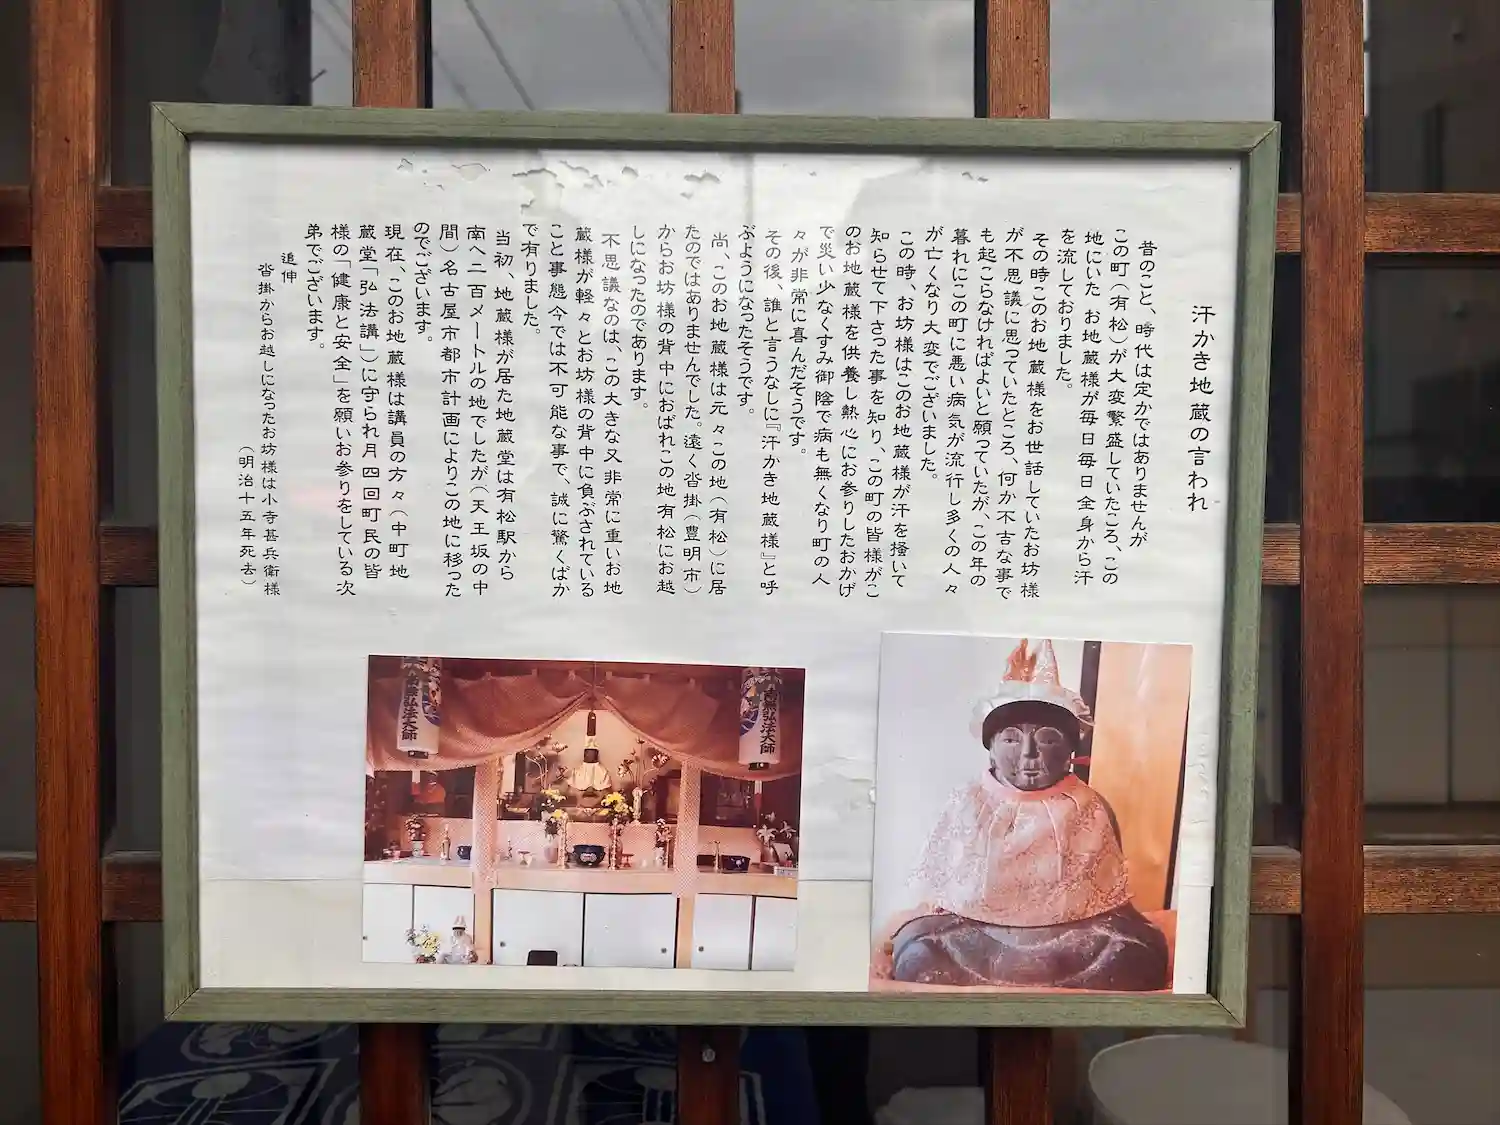 汗かき地蔵の言われ
昔のこと、時代は定かではありませんが
この町(有松)が大変繁盛していたころ、この
地にいた お地蔵様が毎日毎日全身から汗
を流しておりました。
その時このお地蔵様をお世話していたお坊様
が不思議に思っていたところ、何か不吉な事で
も起こらなければよいと願っていたが、この年の
暮れにこの町に悪い病気が流行し多くの人々
が亡くなり大変でございました。
この時、お坊様はこのお地蔵様が汗を掻いて
知らせて下さった事を知り、この町の皆様がこ
のお地蔵様を供養し熱心にお参りしたおかげ
で災い少なくすみ御陰で病も無くなり町の人
々が非常に喜んだそうです。
その後、誰と言うなしに『汗かき地蔵様』と呼
ぶようになったそうです。
尚、このお地蔵様は元々この地(有松)に居
たのではありませんでした。遠く沓掛(豊明市)
からお坊様の背中におばれこの地有松にお越
しになったのであります。
不思議なのは、この大きな又非常に重いお地
蔵様が軽々とお坊様の背中に負ぶされている
こと事態今では不可能な事で、誠に驚くばか
で有りました。
当初、地蔵様が居た地蔵堂は有松駅から
南へ二百メートルの地でしたが(天王坂の中
間)名古屋市都市計画によりこの地に移った
のでございます。
現在、このお地蔵様は講員の方々(中町地
蔵堂「弘法講」)に守られ月四回町民の皆
様の「健康と安全」を願いお参りをしている次
弟でございます。
追伸
沓掛からお越しになったお坊様は小寺甚兵衛様
(明治十五年死去)
南無弘法大師
南無弘法大師